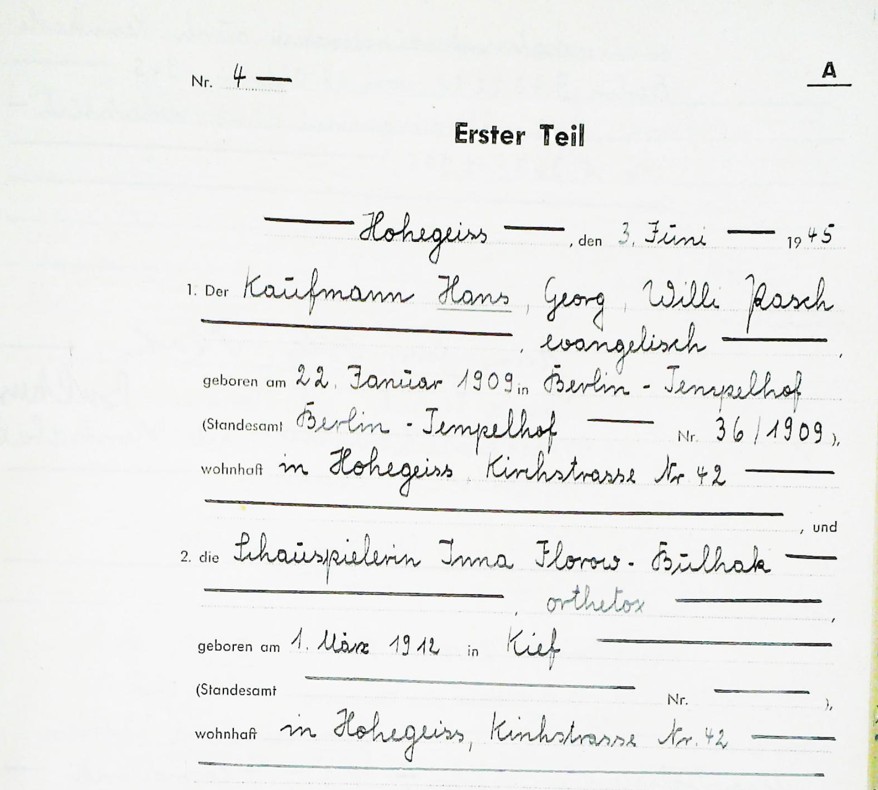 A
Nr. 4 —
Erster Teil
— Hohegeiss —, den 3. Juni — 1945
1. Der Kaufmann Hans, Georg, Willi Rasch
—, evangelisch —,
geboren am 22. Januar 1909 in Berlin - Tempelhof
(Standesamt Berlin - Tempelhof — Nr. 36/1909),
wohnhaft in Hohegeiss, Kirchstrasse Nr 42 —
—, und
2. die Schauspielerin Inna Florow - Bulhak —
—, orthetox —,
geboren am 1. März 1912 in Kief —
(Standesamt — Nr. —),
wohnhaft in Hohegeiss, Kirchstrasse Nr. 42 —